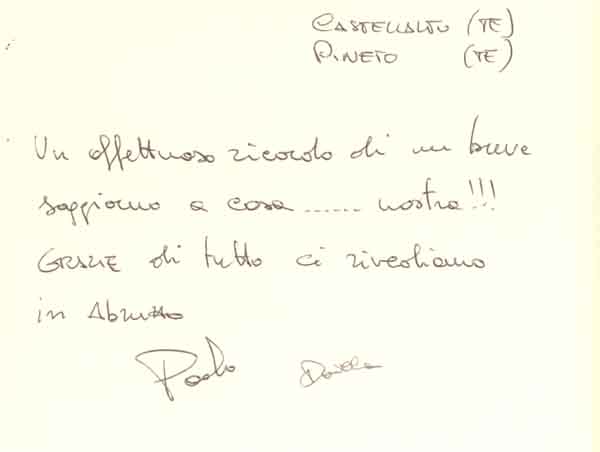 CASTELLALTO (TE)
PINETO (TE)
Un affettuoso ricordo di un breve
soggiorno a casa ...... nostra!!!
GRAZIE di tutto ci rivediamo
in Abruzzo
Paolo